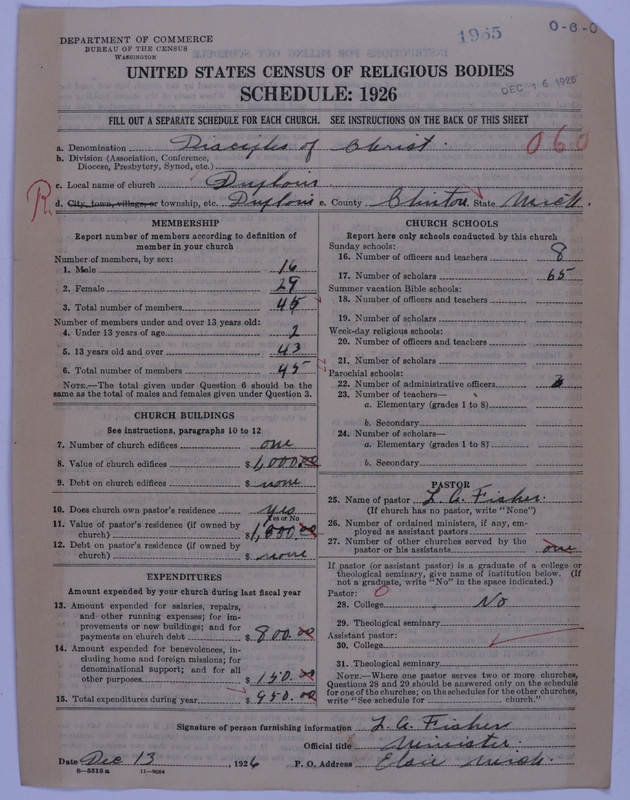 DEPARTMENT OF COMMERCE
BUREAU OF THE CENSUS
WASHINGTON
1965
0-6-0
UNITED STATES CENSUS OF RELIGIOUS BODIES
SCHEDULE: 1926
DEC 16 1926
FILL OUT A SEPARATE SCHEDULE FOR EACH CHURCH. SEE INSTRUCTIONS ON THE BACK OF THIS SHEET
a. Denomination Disciples of Christ. 060
b. Division (Association, Conference, Diocese, Presbytery, Synod, etc.)
c. Local name of church Duplain
R. d. City, town, village, or township, etc. Duplain e. County Clinton State Mich.
MEMBERSHIP
Report number of members according to definition of member in your church
Number of members, by sex:
1. Male 16
2. Female 29
3. Total number of members 45
Number of members under and over 13 years old:
4. Under 13 years of age 2
5. 13 years old and over 43
6. Total number of members 45
NOTE.—The total given under Question 6 should be the same as the total of males and females given under Question 3.
CHURCH BUILDINGS
See instructions, paragraphs 10 to 12
7. Number of church edifices one
8. Value of church edifices $ 1,000.00
9. Debt on church edifices $ none
10. Does church own pastor's residence yes
Yes or No
11. Value of pastor's residence (if owned by church) $
12. Debt on pastor's residence (if owned by church) $ none
EXPENDITURES
Amount expended by your church during last fiscal year
13. Amount expended for salaries, repairs, and other running expenses; for improvements or new buildings; and for payments on church debt $ 800.00
14. Amount expended for benevolences, including home and foreign missions; for denominational support; and for all other purposes $ 150.00
15. Total expenditures during year $ 950.00
CHURCH SCHOOLS
Report here only schools conducted by this church
Sunday schools:
16. Number of officers and teachers 8
17. Number of scholars 65
Summer vacation Bible schools:
18. Number of officers and teachers
19. Number of scholars
Week-day religious schools:
20. Number of officers and teachers
21. Number of scholars
Parochial schools:
22. Number of administrative officers
23. Number of teachers—
a. Elementary (grades 1 to 8)
b. Secondary
24. Number of scholars—
a. Elementary (grades 1 to 8)
b. Secondary
PASTOR
25. Name of pastor L. A. Fisher.
(If church has no pastor, write "None")
26. Number of ordained ministers, if any, employed as assistant pastors
27. Number of other churches served by the pastor or his assistants one
If pastor (or assistant pastor) is a graduate of a college or theological seminary, give name of institution below. (If not a graduate, write "No" in the space indicated.)
Pastor: 0
28. College No
29. Theological seminary
Assistant pastor:
30. College
31. Theological seminary
NOTE.—Where one pastor serves two or more churches, Questions 28 and 29 should be answered only on the schedule for one of the churches; on the schedules for the other churches, write "See schedule for church."
Signature of person furnishing information L. A. Fisher
Official title Minister.
Date Dec 13, 1926 P. O. Address Elsie Mich.
8—5518a 11—9054